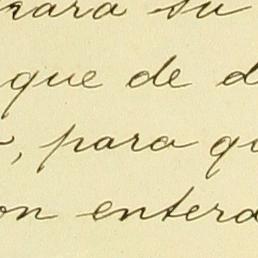 para su
que de d
, para qu
on entera